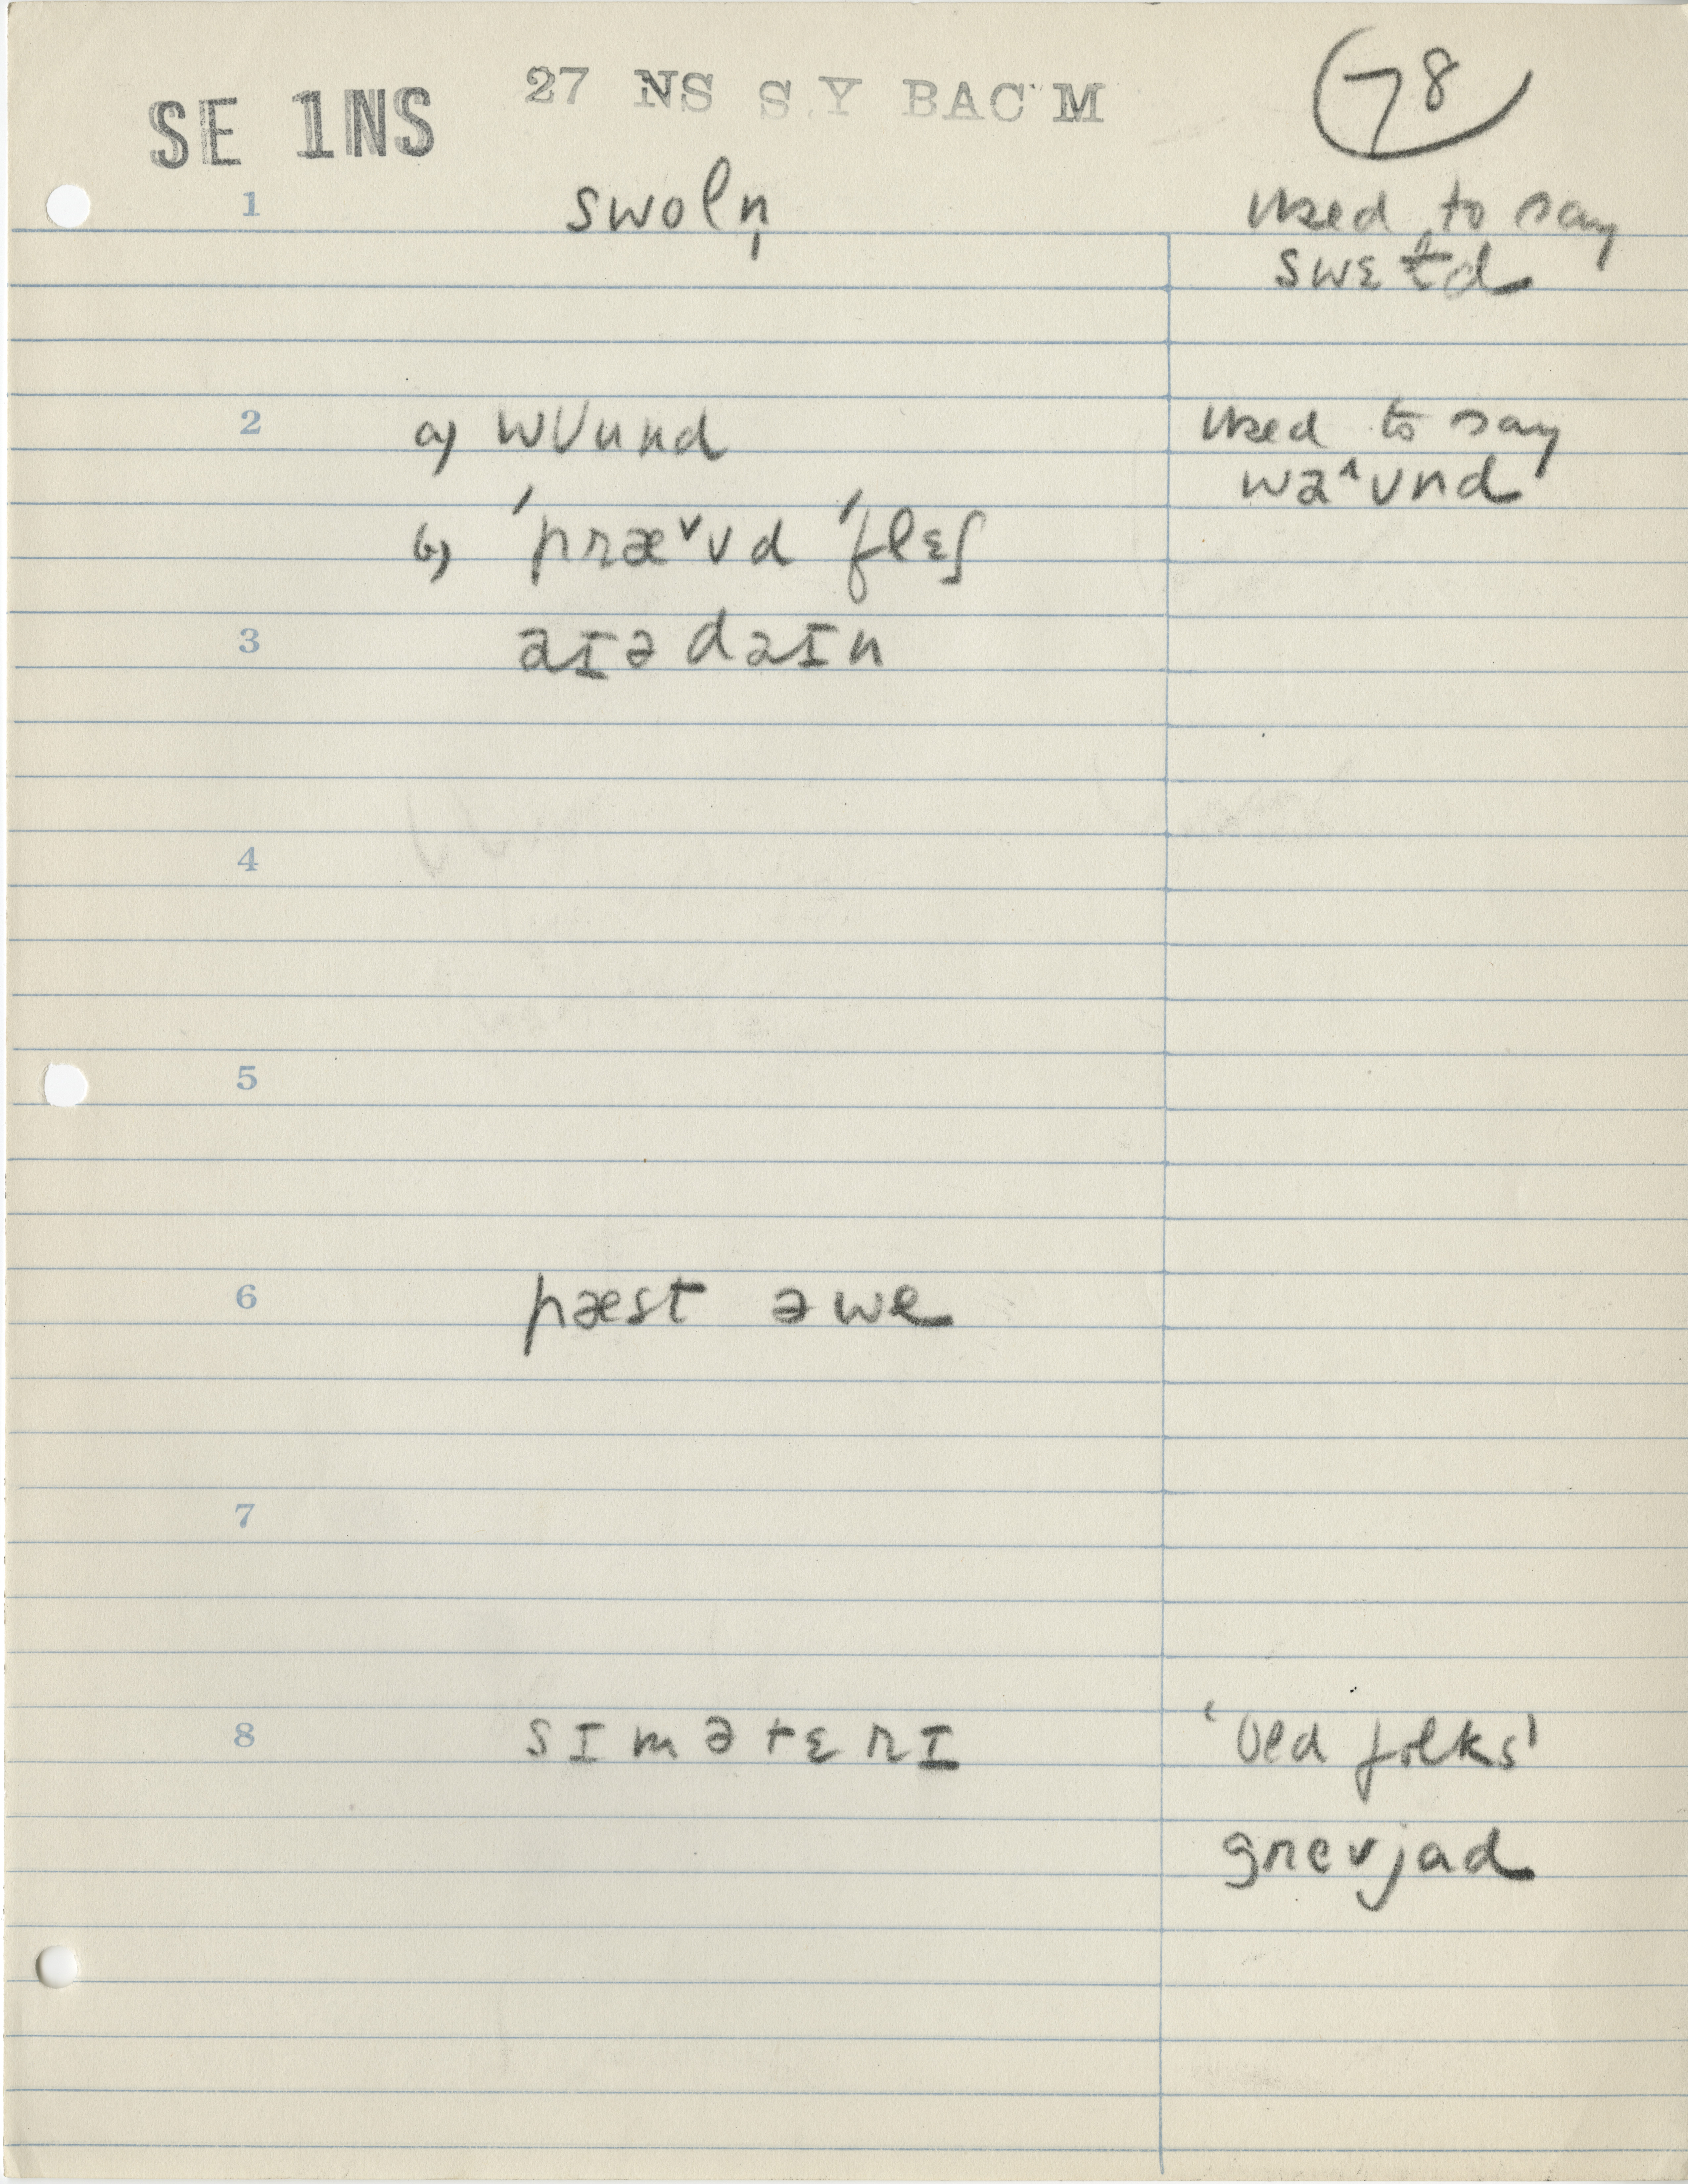 SE 1NS 27 NS S Y BAC M 78
1 swoln̩ used to say
swɛɫd
2 a) wʊund used to say
wa^ʊnd
b) 'præˇʊd 'flɛʃ
3 aɪədaɪn
4
5
6
pæst əwe
7
8 sɪmətɛrɪ 'old folks'
grevjad